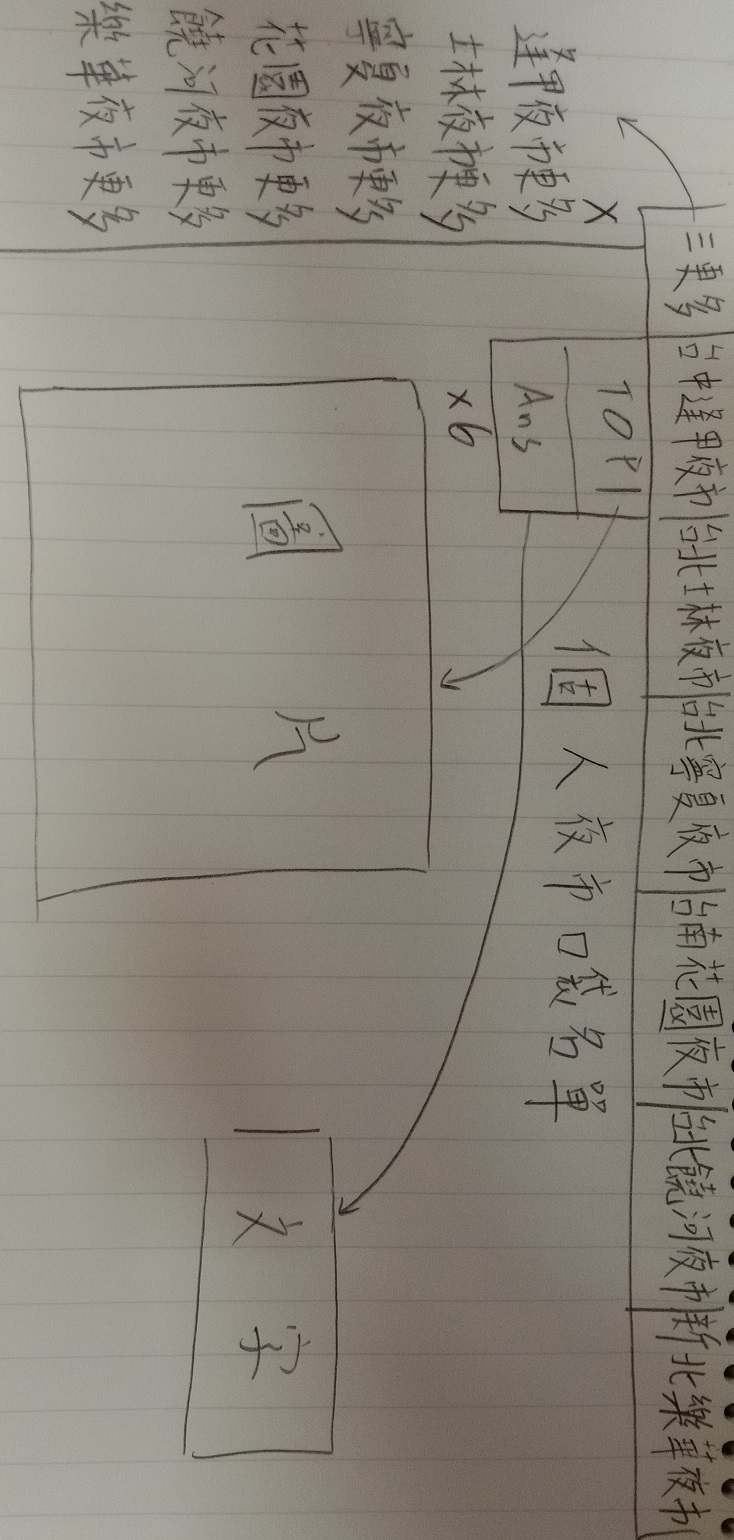 三更多 台中逢甲夜市 台北士林夜市 台北寧夏夜市 台南花園夜市 台北饒河夜市 新北樂華夜市
X
逢甲夜市更多
士林夜市更多
寧夏夜市更多
花園夜市更多
饒河夜市更多
樂華夜市更多
TOP1
Ans
x6
個人夜市口袋名單
圖片
文字